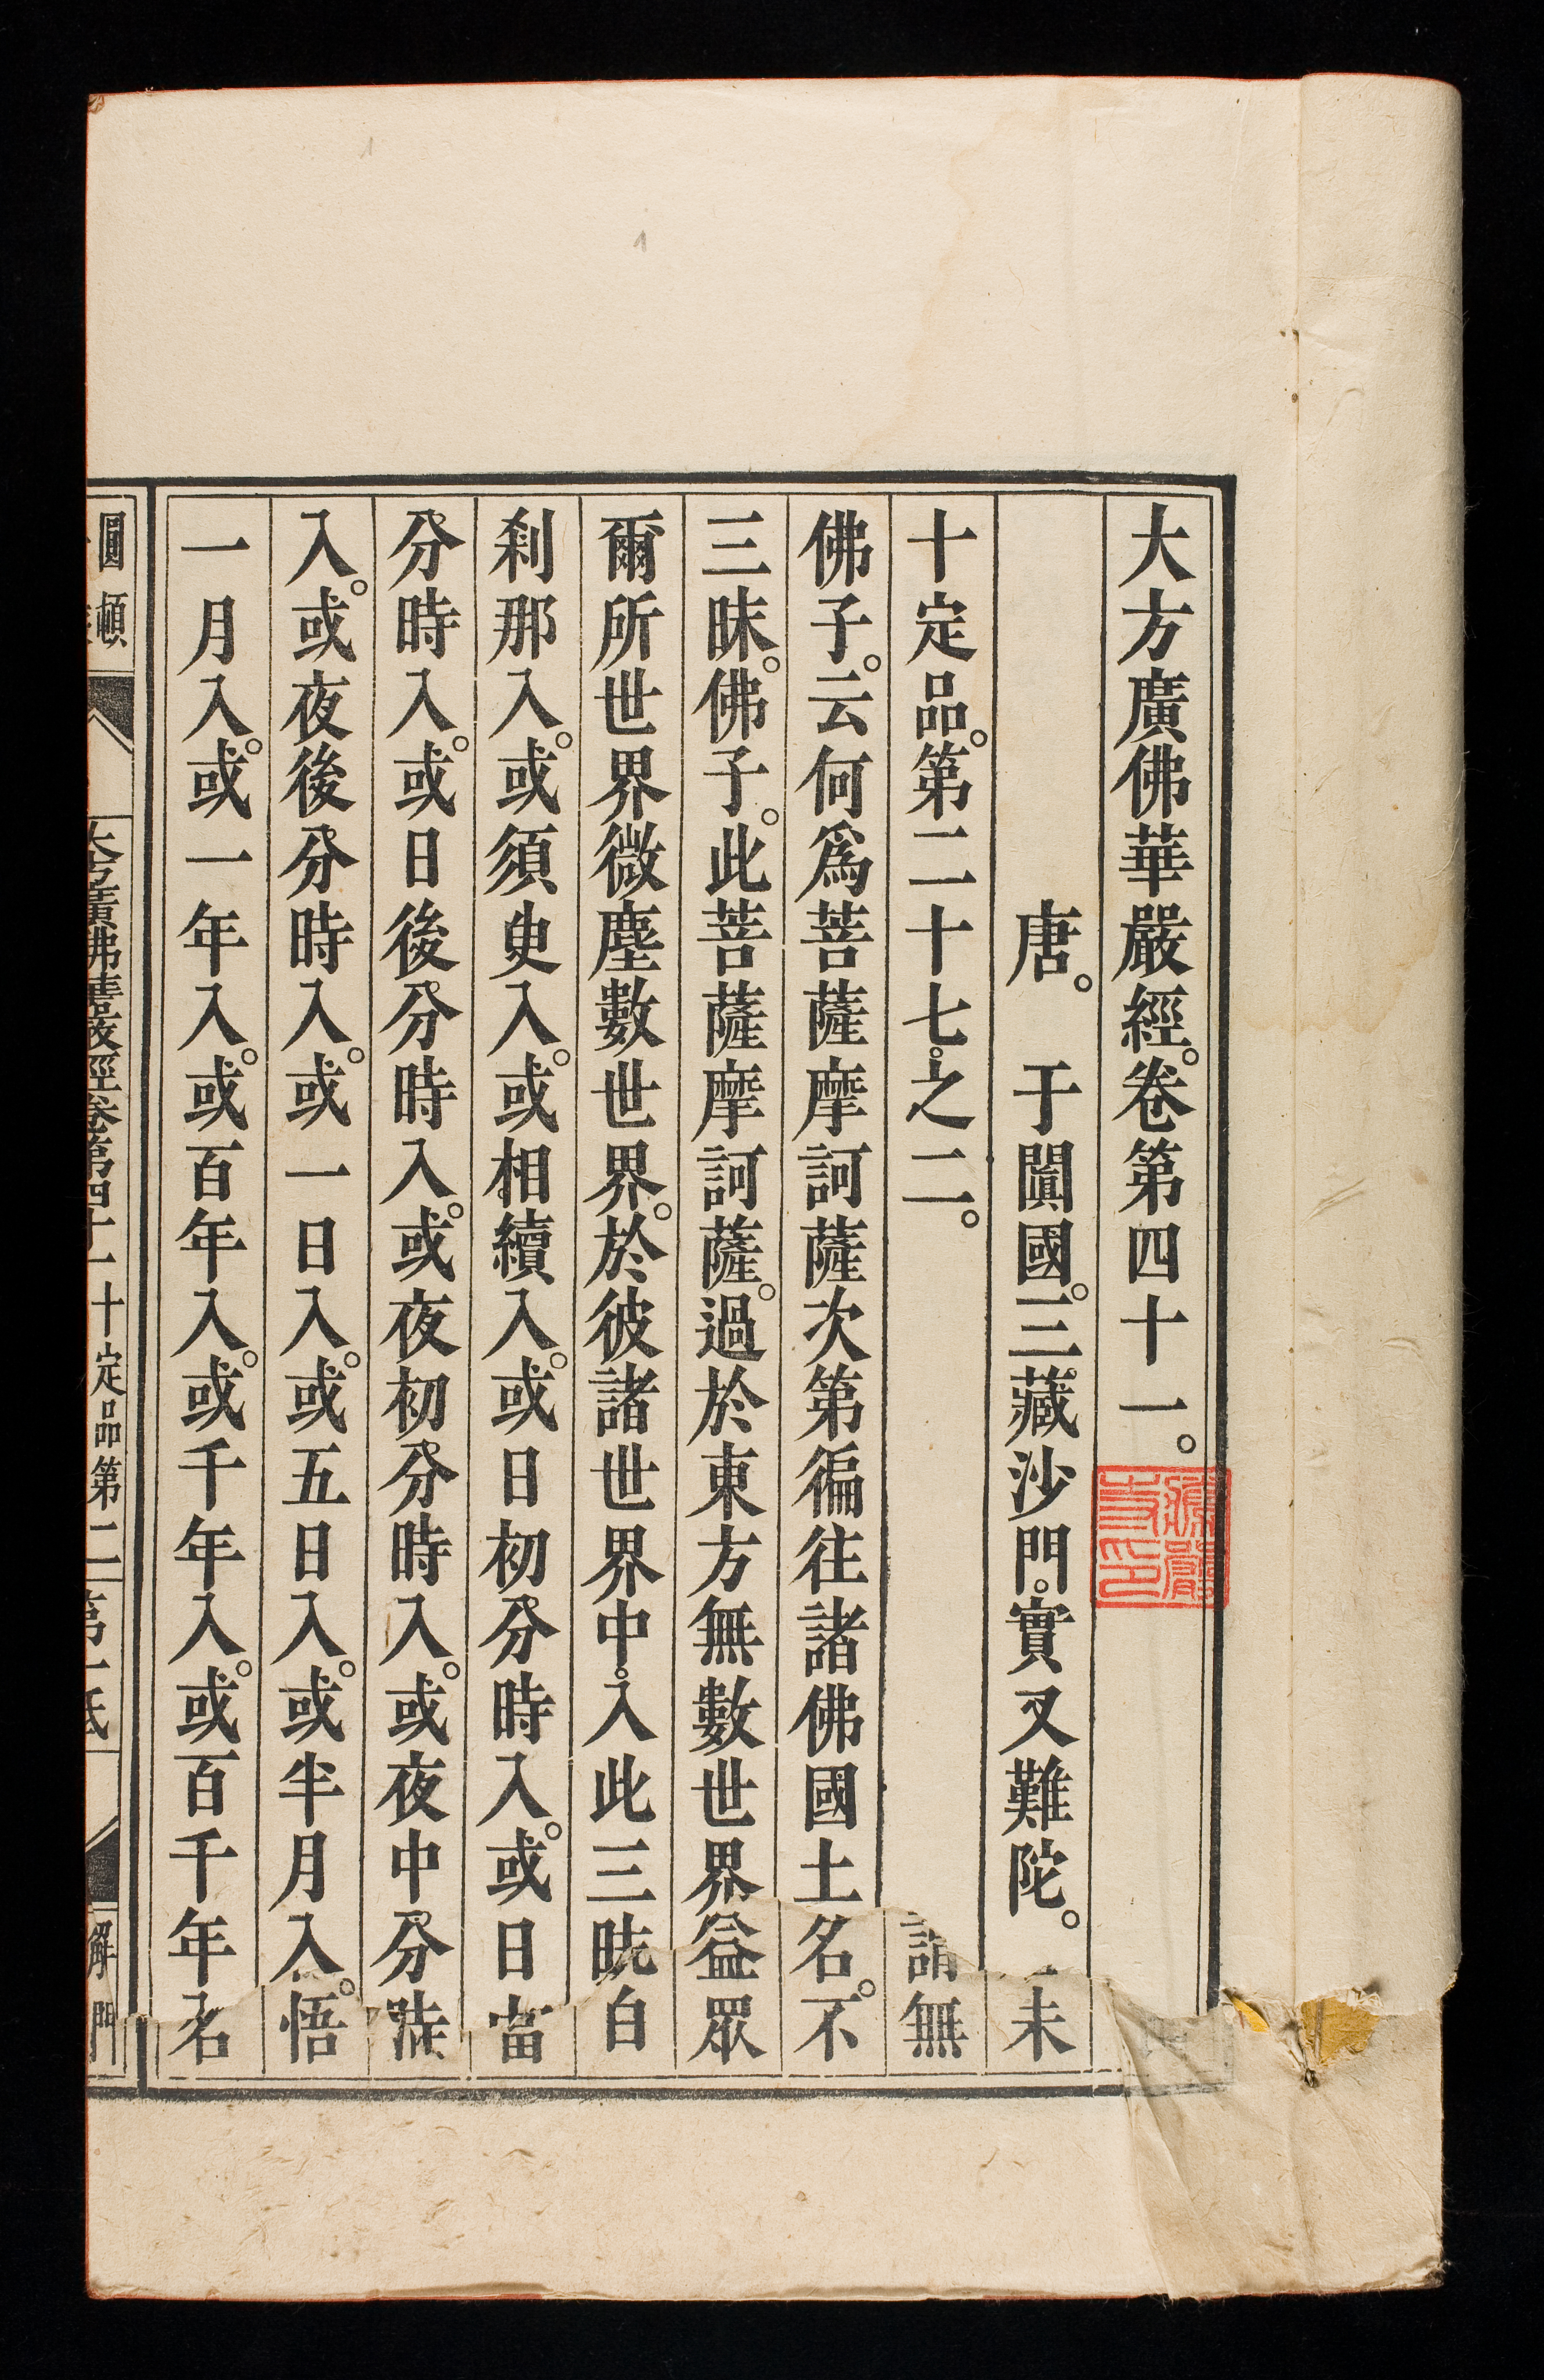 大方廣佛華嚴經。卷第四十一。
唐。于闐國。三藏沙門。實叉難陀。未
十定品。第二十七。之二。無
佛子。云何爲菩薩摩訶薩次第徧往諸佛國土名。不
三昧。佛子。此菩薩摩訶薩。過於東方無數世界益眾
爾所世界微塵數世界。於彼諸世界中。入此三白
刹那入。或須臾入。或相續入。或日初分時入。或日當
分時入。或日後分時入。或夜初分時入。或夜中分
入。或夜後分時入。或一日入。或五日入。或半月入。悟
一月入。或一年入。或百年入。或千年入。或百千年名
圓頓
大方廣佛華嚴經卷第四十一 十定品第二 第一紙
解門